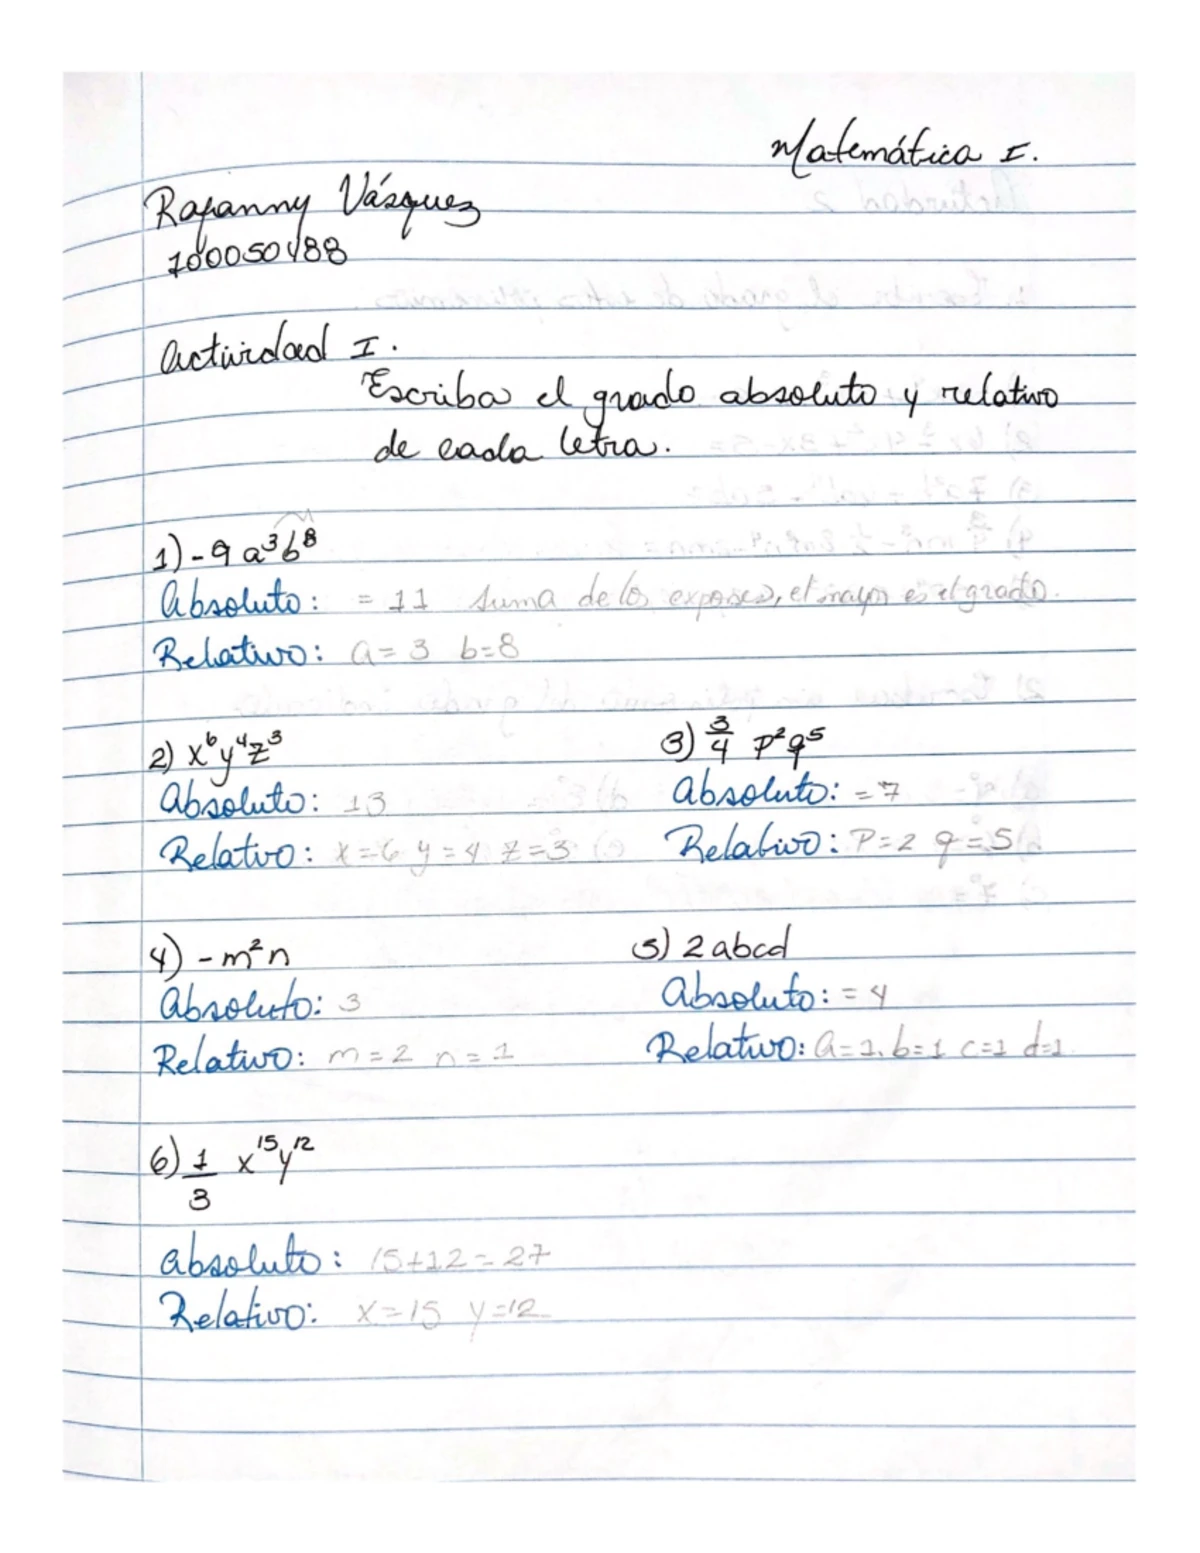 Matemática I.
Rafanny Vásquez
100050488
Actividad I.
Escriba el grado absoluto y relativo
de cada letra.
1) -9 a³b⁸
Absoluto: = 11 Suma de los, el mayor es el grado.
Relativo: a = 3 b=8
2) x⁶y⁴z³
Absoluto: 13
Relativo: x=6 y=4 z=3
3) 3/4 p²q⁵
Absoluto: = 7
Relativo: P=2 q=5
4) -m²n
Absoluto: 3
Relativo: m=2 n=1
5) 2abcd
Absoluto: = 4
Relativo: a=1. b=1 c=1 d=1
6) 1/3 x¹⁵y¹²
absoluto: 15+12=27
Relativo: x=15 y=12